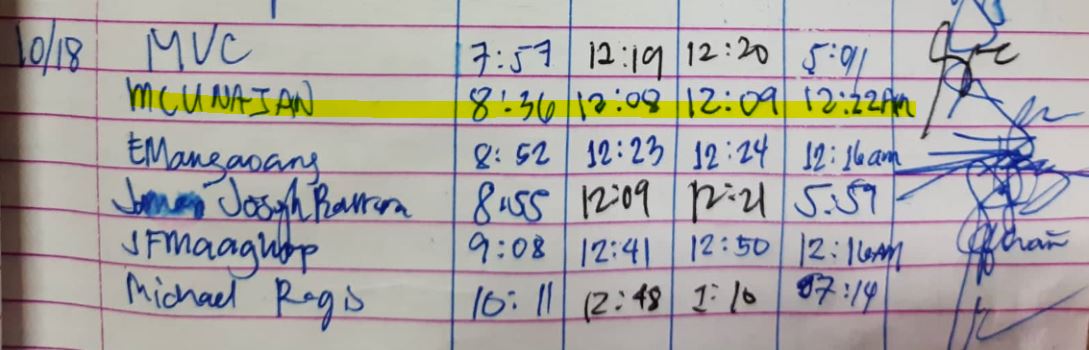 10/18 MVC 7:57 12:19 12:20 5:01
MCUNAJAN 8:36 12:08 12:09 12:22AM
EMangaoang 8:52 12:23 12:24 12:16am
Joseph 8:55 12:09 12:21 5:59
9:08 12:41 12:50 12:16AM
Michael Regis 10:11 12:48 1:10 07:14